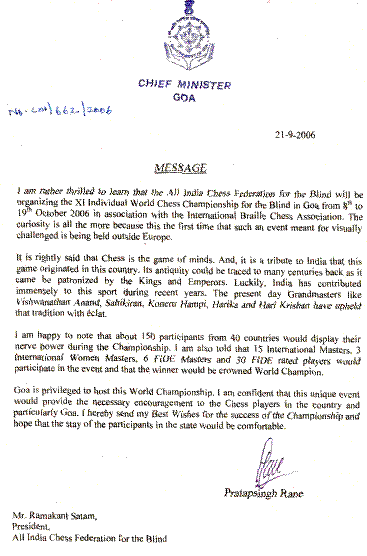 CHIEF MINISTER
GOA
21-9-2006
MESSAGE
I am rather thrilled to learn that the All India Chess Federation for the Blind will be
organizing the XI Individual World Chess Championship for the Blind in Goa from 8th to
19th October 2006 in association with the International Braille Chess Association. The
curiosity is all the more because this the first time that such an event meant for visually
challenged is being held outside Europe.
It is rightly said that Chess is the game of minds. And, it is a tribute to India that this
game originated in this country. Its antiquity could be traced to many centuries back as it
came be patronized by the Kings and Emperors. Luckily, India has contributed
immensely to this sport during recent years. The present day Grandmasters like
Vishwanathan Anand, Sahikiran, Koneru Hampi, Harika and Hari Krishan have upheld
that tradition with éclat.
I am happy to note that about 150 participants from 40 countries would display their
nerve power during the Championship. I am also told that 15 International Masters, 3
International Women Masters, 6 FIDE Masters and 30 FIDE rated players would
participate in the event and that the winner would be crowned World Champion.
Goa is privileged to host this World Championship. I am confident that this unique event
would provide the necessary encouragement to the Chess players in the country and
particularly Goa. I hereby send my Best Wishes for the success of the Championship and
hope that the stay of the participants in the state would be comfortable.
Pratapsingh Rane
Mr. Ramakant Satam,
President,
All India Chess Federation for the Blind